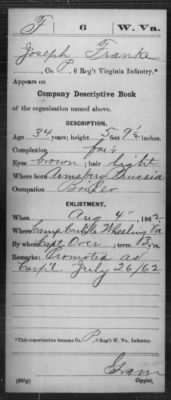 F 6 W. Va.
Joseph Franke
, Co. P, 6 Reg't Virginia Infantry.*
Appears on
Company Descriptive Book
of the organization named above.
DESCRIPTION.
Age 34 years; height 5 feet 9½ inches.
Complexion fair
Eyes brown; hair light
Where born Prussia
Occupation
ENLISTMENT.
When Aug 4", 1862.
Where Camp Carlile Wheeling Va
By whom Capt. Over; term 3 y'rs.
Remarks: Promoted as
Corp'l. July 26/62
*This organization became Co. P, 6 Reg't W. Va. Infantry.
Copyist.